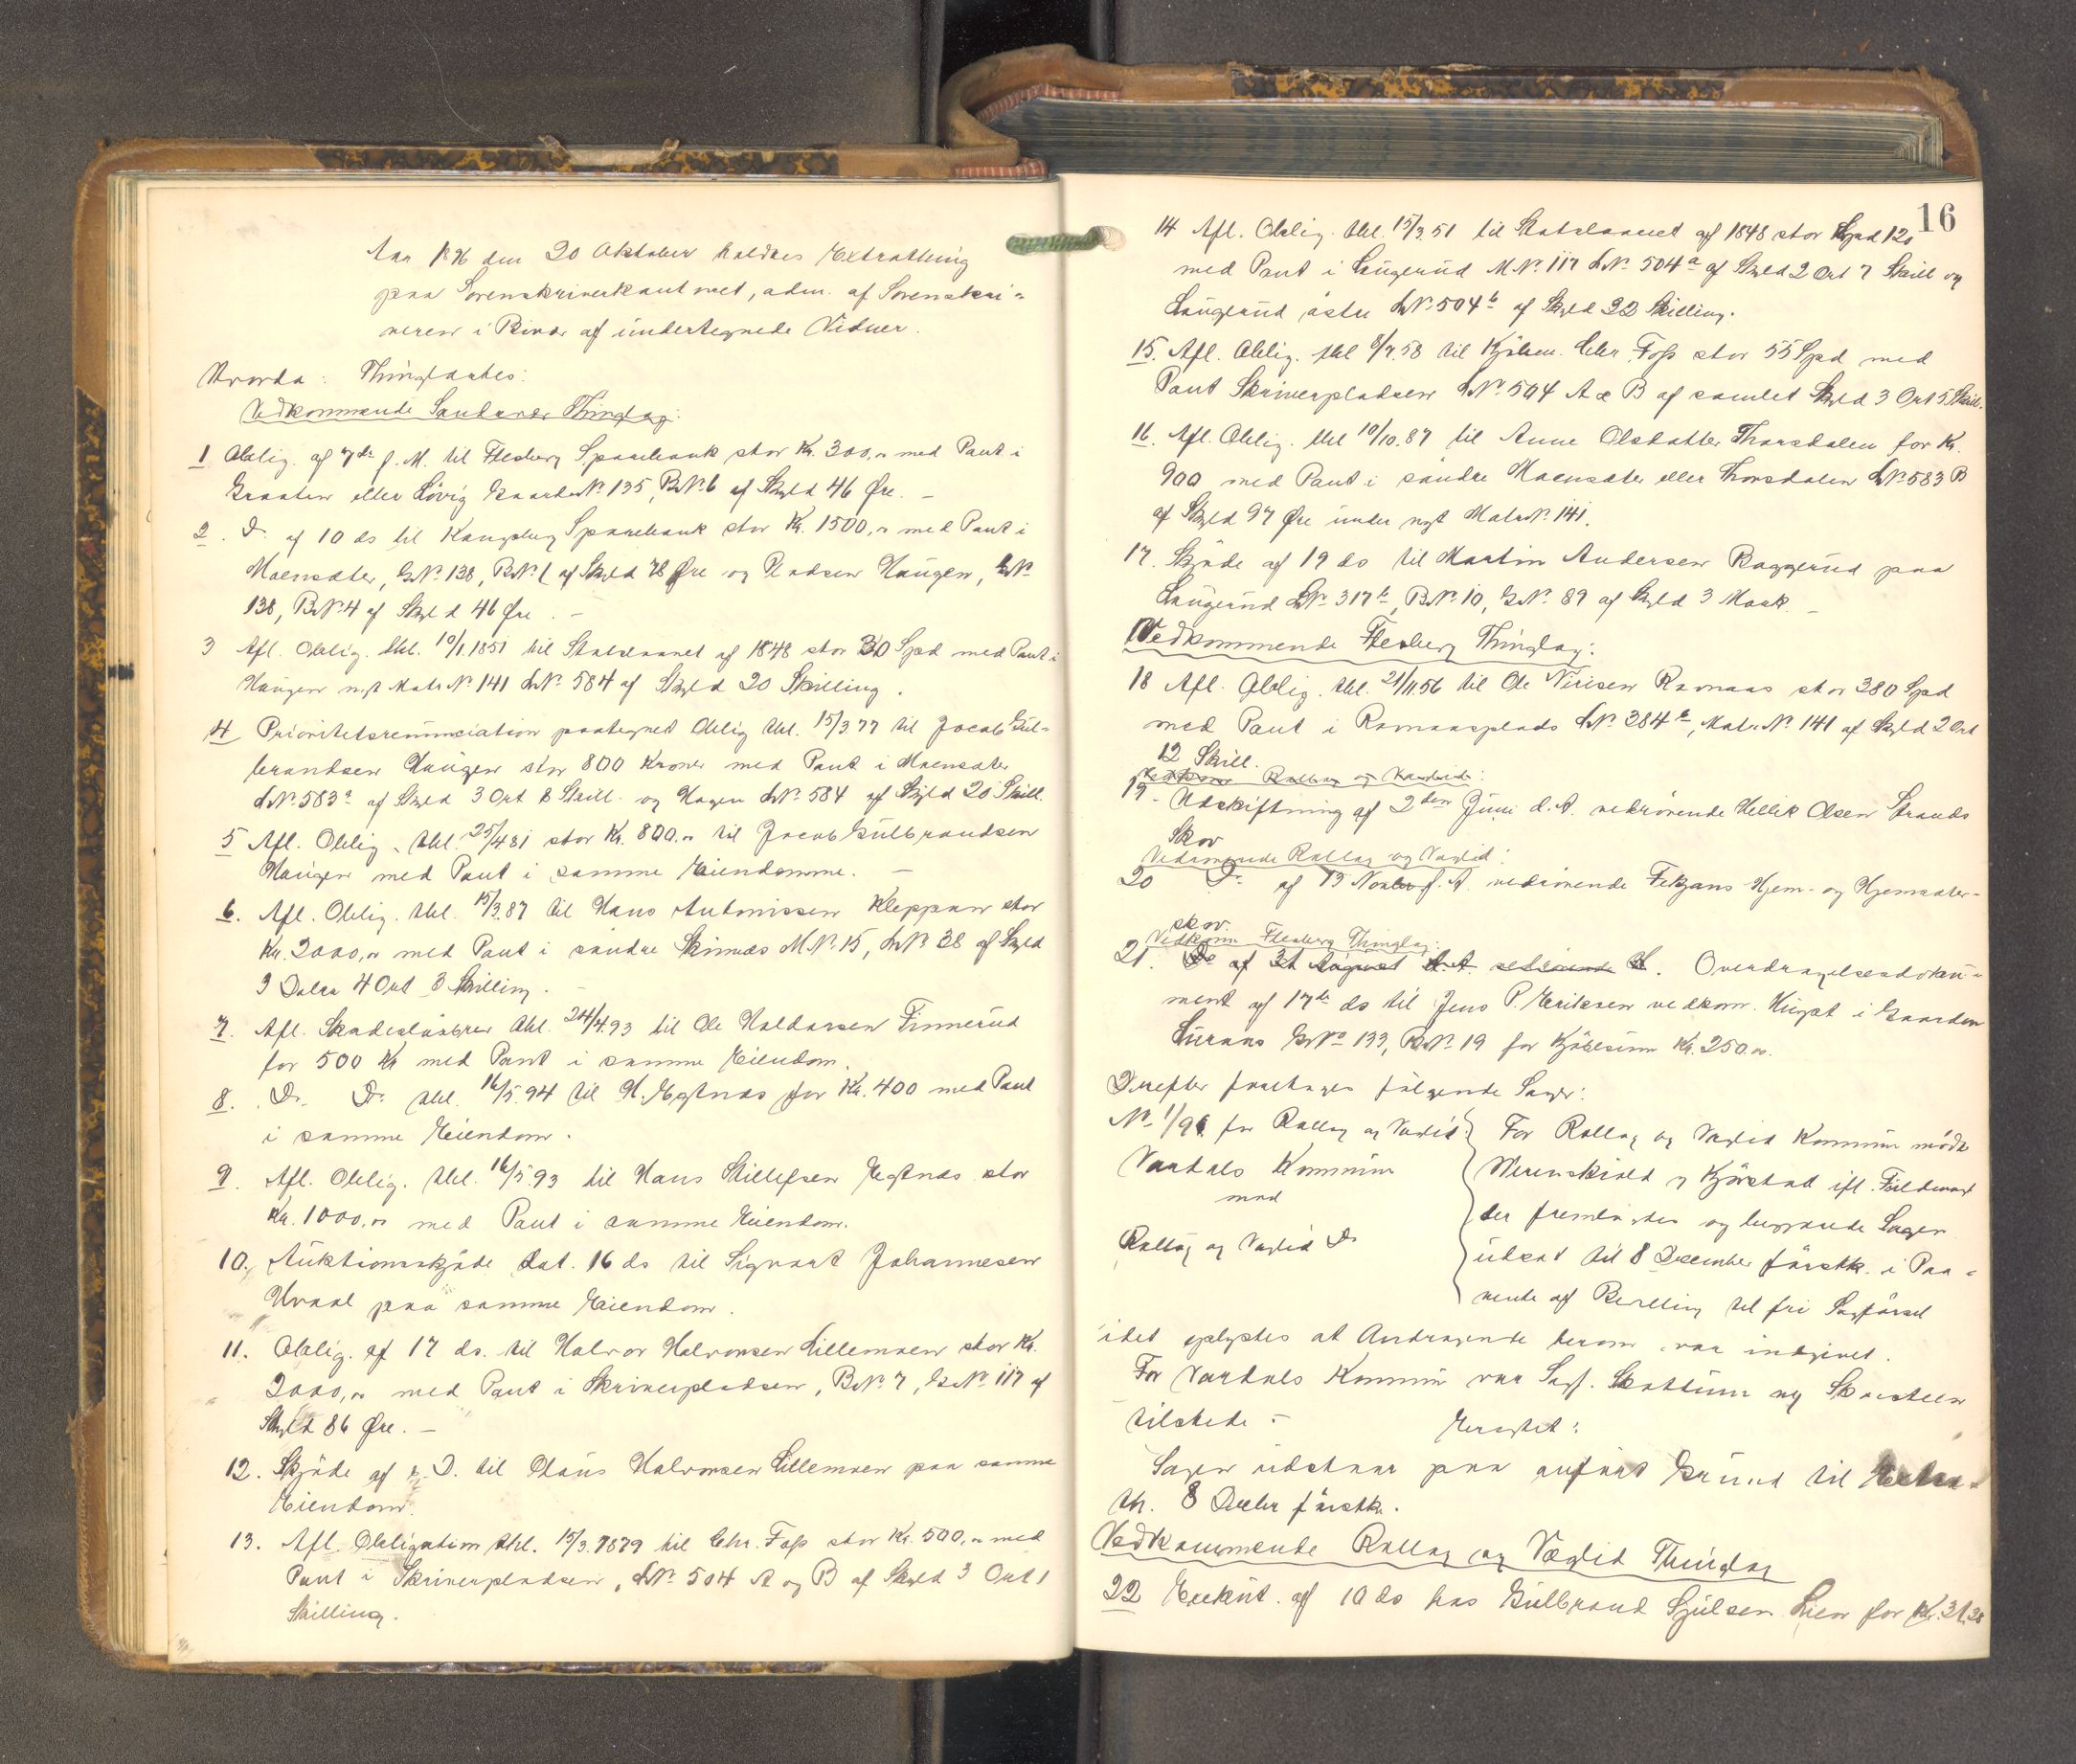 Aar 1896 den 20 Oktober holdtes Extrathing
paa Sorenskriverkontoret, adm. af Sorenskri-
veren i Bisvær af undertegnede Vidner.
Hvorda: Thinglæstes:
Vedkommende Sandsværs Thinglag:
1 Oblig. af 7de f. M. til Flesberg Sparebank stor Kr. 300,00 med Pant i
Graaten eller Søvig Gaards No 135, BNo 6 af Skyld 46 Øre. —
2. Do af 10 ds til Kongsberg Sparebank stor Kr. 1500,00 med Pant i
Moensæter, GNo 138, BNo 1 af Skyld 78 Øre og Pladsen Haugen, GNo
138, BNo 4 af Skyld 46 Øre. —
3 Afl. Oblig. thl. 10/1.1851 til Statslaanet af 1848 stor 30 Spd med Pant i
Haugen nyt Matr No 141 LNo 584 af Skyld 20 Skilling.
4 Prioritetsrenunciation paategnet Oblig thl. 15/3 77 til Jocob Gul-
brandsen Haugen stor 800 Kroner med Pant i Moensæter
LNo 583a af Skyld 3 Ort 8 Skill. og Hagen LNo 584 af Skyld 20 Skill.
5 Afl. Oblig. thl. 25/4 81 stor Kr. 800,00 til Jacob Gulbrandsen
Haugen med Pant i samme Eiendomme. —
6. Afl. Oblig. thl. 15/3.87 til Hans Antonissen Kleppan stor
Kr. 2000,00 med Pant i søndre Skinnes MNo 15, LNo 38 af Skyld
3 Daler 4 Ort 3 Skilling. —
7. Afl. Skadesløsbrev thl. 24/4.93 til Ole Haldorsen Finnerud
for 500 Kr med Pant i samme Eiendom.
8. Do Do thl. 16/5.94 til H. Egtnæs for Kr. 400 med Pant
i samme Eiendom.
9. Afl. Oblig. thl. 16/5 93 til Hans Stillefsen Egtnæs stor
Kr. 1000,00 med Pant i samme Eiendom.
10. Auktionsskjøde dat. 16 ds til Sigvart Johannesen
Hvaal paa samme Eiendom.
11. Oblig. af 17 ds. til Halvor Halvorsen Lillemoen stor Kr.
2000,00 med Pant i Skriverpladsen, BNo 7, GNo 117 af
Skyld 86 Øre. —
12. Skjøde af s. D. til Claus Halvorsen Lillemoen paa samme
Eiendom.
13. Afl. Obligation thl. 15/3.1879 til Chr. Foss stor Kr. 500,00 med
Pant i Skriverpladsen, LNo 504 A og B af Skyld 3 Ort 1
Skilling.
16
14 Afl. Oblig. thl. 15/3.51 til Statslaanet af 1848 stor Spd 120
med Pant i Laugerud MNo 117 LNo 504a af Skyld 2 Ort 7 Skill og
Laugerud østre LNo 504b af Skyld 22 Skilling.
15. Afl. Oblig. thl 8/7.58 til Kjøbm. Chr. Foss stor 55 Spd med
Pant Skriverpladsen LNo 504 A & B af samlet Skyld 3 Ort 5 Skill.
16. Afl. Oblig. thl 10/10.87 til Anne Olsdatter Thorsdalen for Kr.
900 med Pant i søndre Moensæter eller Thorsdalen LNo 583 B
af Skyld 97 Øre under nyt Matr No 141.
17. Skjøde af 19 ds til Martin Andersen Baggerud paa
Laugerud LNo 317b, BNo 10, GNo 89 af Skyld 3 Mark. —
Vedkommende Flesberg Thinglag:
18 Afl. Oblig. thl. 21/11.56 til Ole Nirisen Ramaas stor 280 Spd
med Pant i Ramaasplads LNo 384b, Matr. No 141 af Skyld 2 Ort
12 Skill.
Vedkom Rollag og Væglid:
19. Udskiftning af 2den Juni d. A. vedrørende Hellik Olsen Strands
Skov
Vedrørende Rollag og Væglid:
20 Do af 13 Novbr f. A. vedrørende Fekjans Hjem- og Hjemsæter-
skov.
Vedkom Flesberg Thinglag:
21. Do af 31 August d. A. vedrørende H. Overdragelsesdoku-
ment af 17de ds til Jens P. Eriksen vedkom. Huset i Gaarden
Luraas GNo 133, BNo 19 for Kjøbesum Kr. 250.00.
Derefter foretages følgende Sager:
No 1/96 for Rollag og Væglid: For Rollag og Væglid Kommun mødte
Vardals Kommun Werenskiold og Kjørstad ifl. Fuldmagt
mod der fremlagdes og begjærede Sagen
Rollag og Væglid Do udsat til 8 December førstk. i Paa-
vente af Bevilling til fri Sagførsel
idet oplystes at Andragende herom var indgivet.
For Vardals Kommun var Sagf. Skattum og Skarsteen
tilstede. — Eragtet:
Sagen udstaar paa anført Grund til Extra-
th. 8 Decbr førstk.
Vedkommende Rollag og Væglid Thinglag
22 Exekut. af 10 ds hos Gulbrand Gjulsen Lien for Kr. 31,38